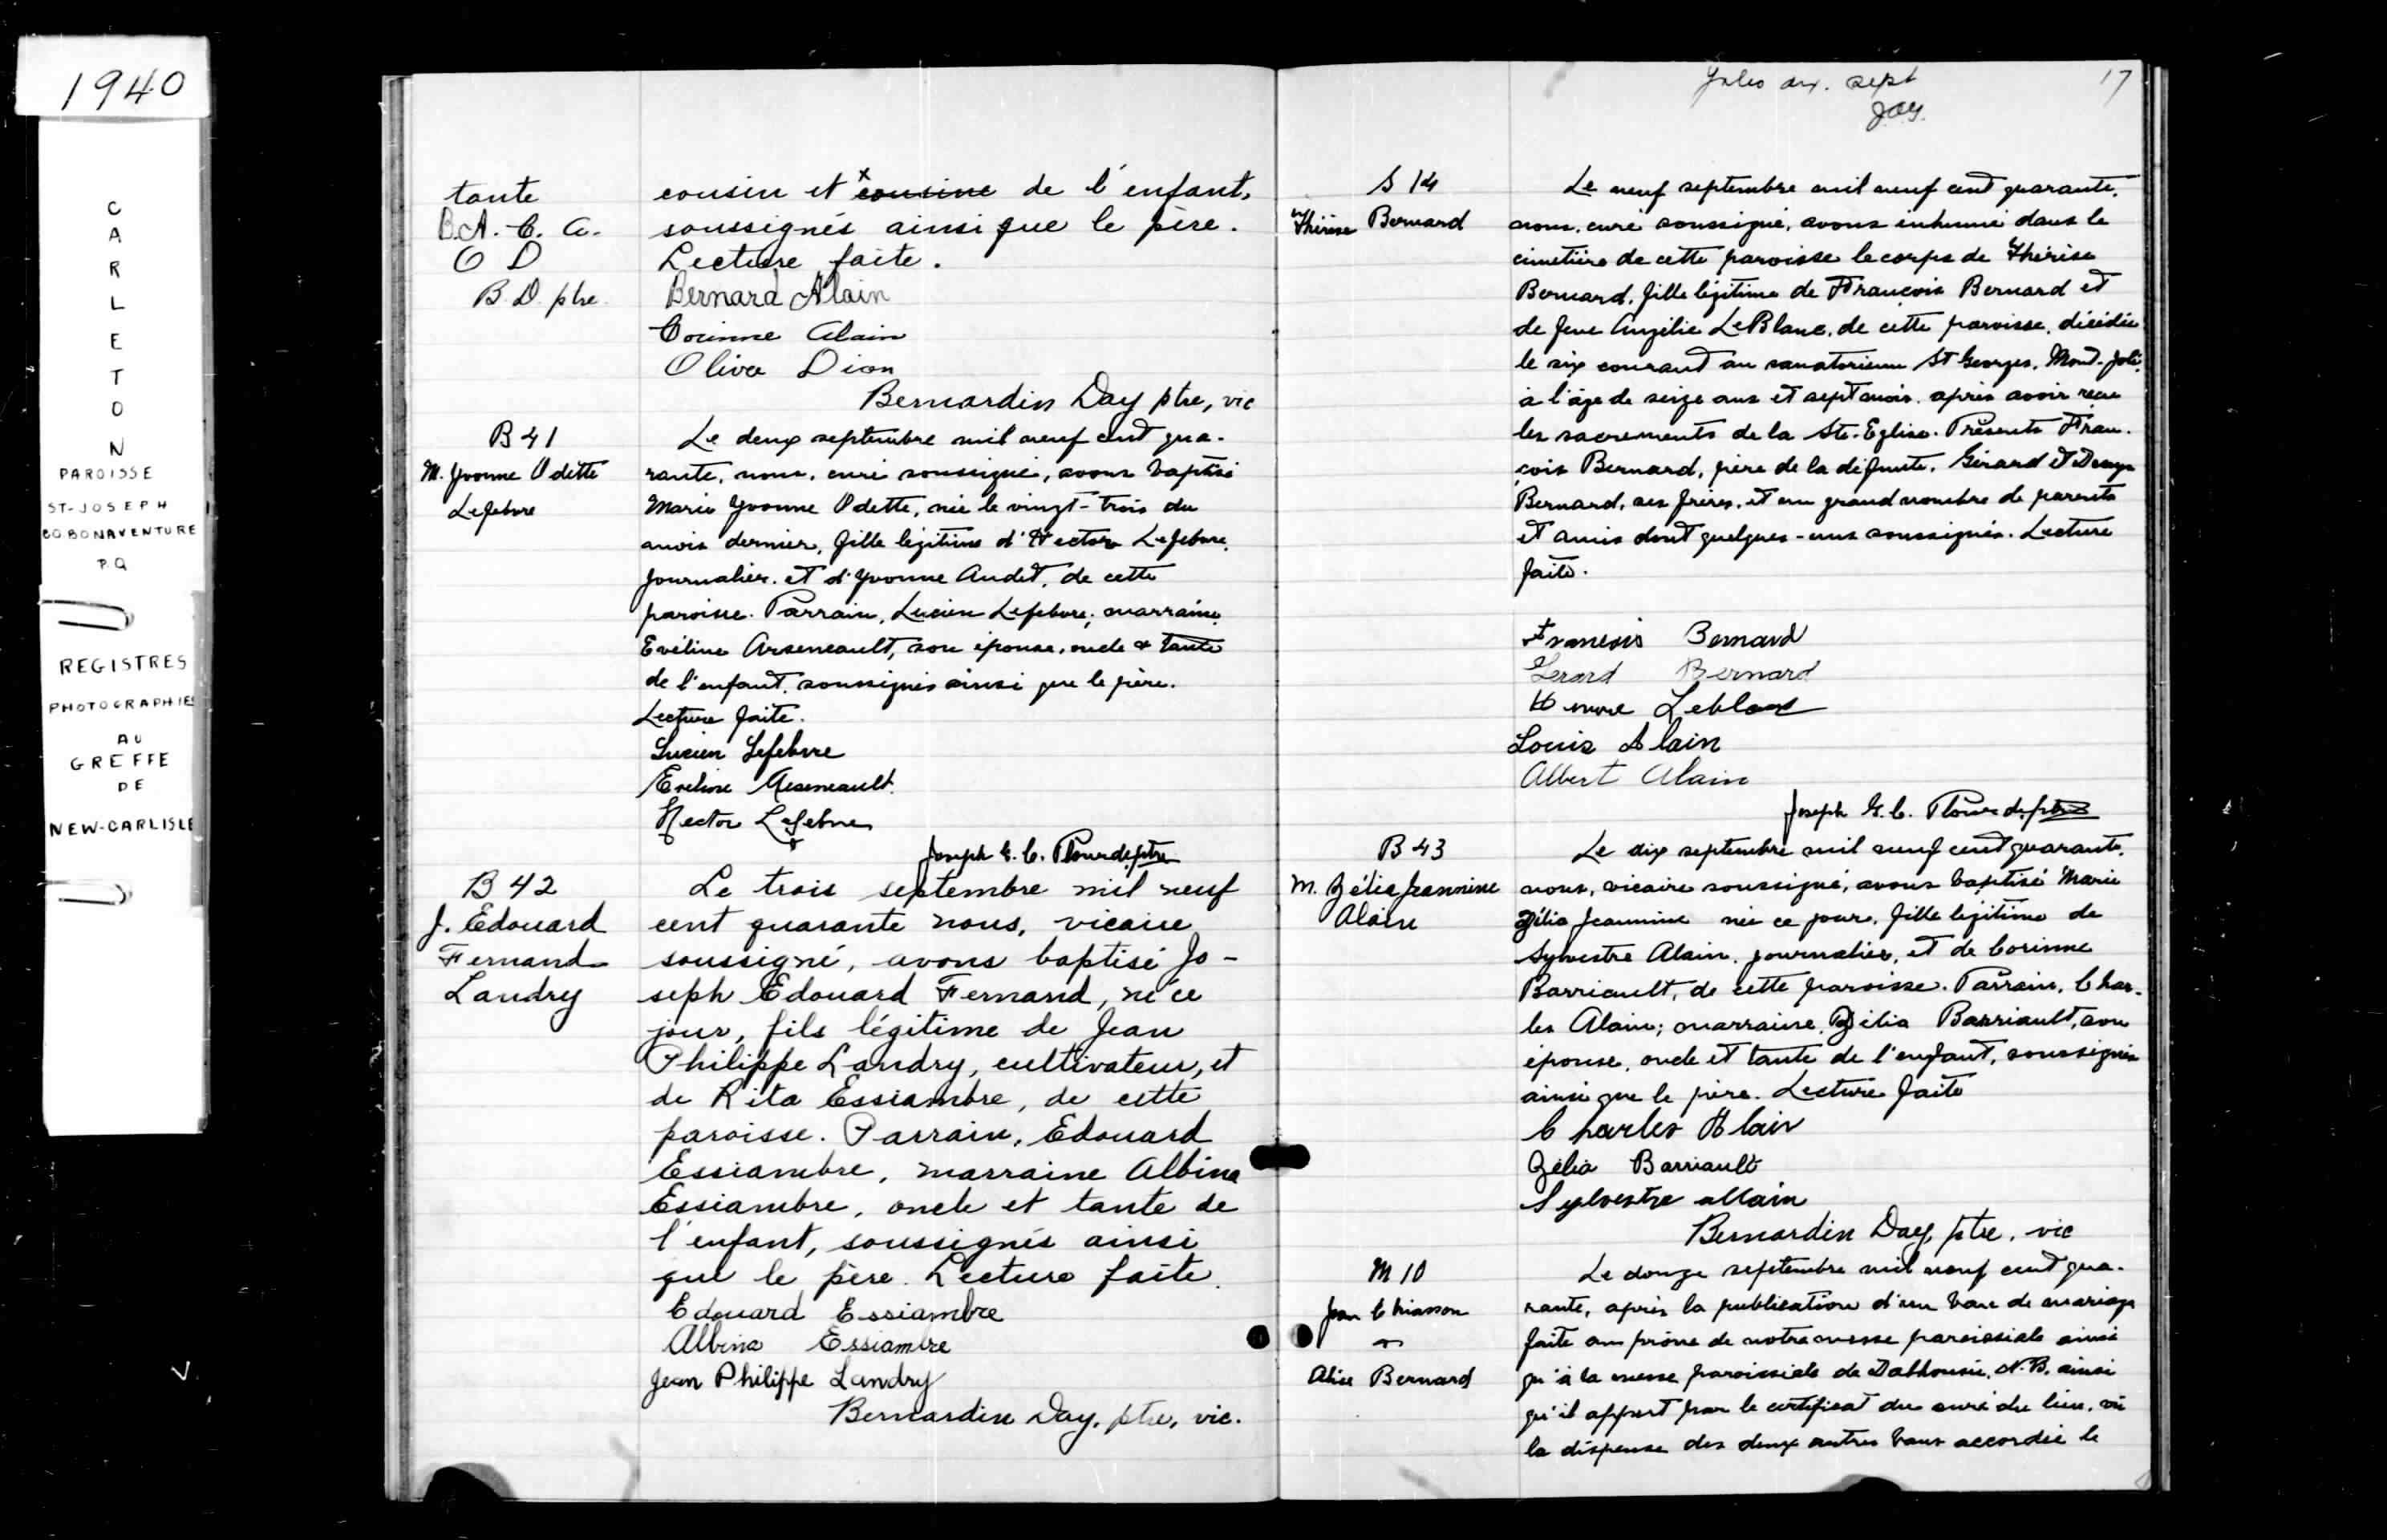 1940
CARLETON
PAROISSE
ST-JOSEPH
CO.BONAVENTURE
P.Q
REGISTRES
PHOTOGRAPHIES
AU
GREFFE
DE
NEW-CARLISLE
tante
B.A. C. A.
O D
B. D. ptre
cousin et x cousine de l'enfant,
soussignés ainsi que le père.
Lecture faite.
Bernard Alain
Corinne Alain
Oliva Dion
Bernardin Day ptre, vic
B 41
M. Yvonne Odette
Lefebvre
Le deux septembre mil neuf cent qua-
rante, nous, curé soussigné, avons baptisé
Marie Yvonne Odette, née le vingt-trois du
mois dernier, fille légitime d'Hector Lefebvre,
journalier, et d'Yvonne Audet, de cette
paroisse. Parrain, Lucien Lefebvre; marraine,
Eveline Arseneault, son épouse, oncle & tante
de l'enfant, soussignés ainsi que le père.
Lecture faite.
Lucien Lefebvre
Eveline Arseneault
Hector Lefebvre
Joseph E. C. Plourde ptre
B 42
J. Edouard
Fernand
Landry
Le trois septembre mil neuf
cent quarante nous, vicaire
soussigné, avons baptisé Jo-
seph Edouard Fernand, né ce
jour, fils légitime de Jean
Philippe Landry, cultivateur, et
de Rita Essiambre, de cette
paroisse. Parrain, Edouard
Essiambre, marraine Albina
Essiambre, oncle et tante de
l'enfant, soussignés ainsi
que le père. Lecture faite.
Edouard Essiambre
Albina Essiambre
Jean Philippe Landry
Bernardin Day, ptre, vic.
sept
17
S 14
Thérèse Bernard
Le neuf septembre mil neuf cent quarante,
nous, curé soussigné, avons inhumé dans le
cimetière de cette paroisse le corps de Thérèse
Bernard, fille légitime de François Bernard et
de feue Angélie LeBlanc, de cette paroisse, décédée
le six courant au sanatorium St Georges, Mont-Joli,
à l'âge de seize ans et sept mois, après avoir reçu
les sacrements de la Ste-Eglise. Présents Fran-
çois Bernard, père de la défunte, Gérard et
Bernard, ses frères, et un grand nombre de parents
et amis dont quelques-uns soussignés. Lecture
faite.
François Bernard
Gerard Bernard
Leblanc
Louis Alain
Albert Alain
Joseph E. C. Plourde ptre
B 43
M. Zélia Jeannine
Alain
Le dix septembre mil neuf cent quarante,
nous, vicaire soussigné, avons baptisé Marie
Zélia Jeannine née ce jour, fille légitime de
Sylvestre Alain, journalier, et de Corinne
Barriault, de cette paroisse. Parrain, Char-
les Alain; marraine, Zélia Barriault, son
épouse, oncle et tante de l'enfant, soussignés
ainsi que le père. Lecture faite
Charles Alain
Zélia Barriault
Sylvestre Allain
Bernardin Day, ptre, vic
M 10
Jean Chiasson
Alice Bernard
Le douze septembre mil neuf cent qua-
rante, après la publication d'un banc de mariage
faite au prône de notre messe paroissiale ainsi
qu'à la messe paroissiale de Dalhousie, N.B. ainsi
qu'il appert par le certificat du curé du lieu, vu
la dispense des deux autres bans accordée le